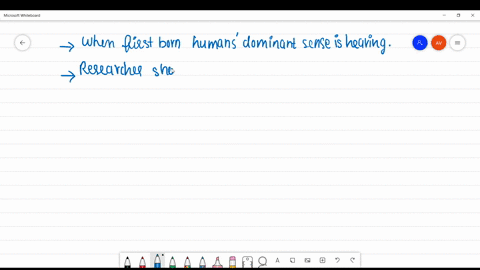 Microsoft Whiteboard
→ When fiest born humans' dominant sense is hearing.
→ Researcher sho